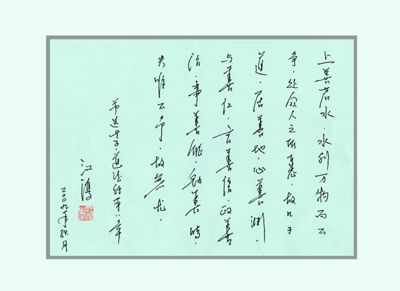 上善若水·水利万物而不
争·处众人之所恶·故几于
道·居善地·心善渊·
与善仁·言善信·政善
治·事善能·动善时·
夫唯不争·故无尤·
节选老子·道德经第八章
江
二〇〇九年秋月